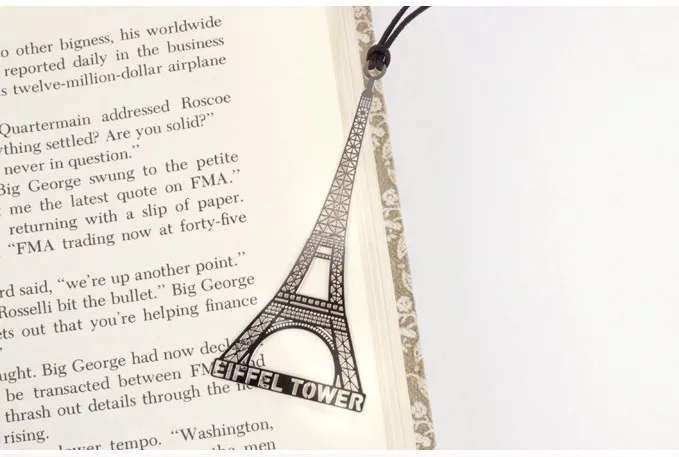 o other bigness, his worldwide
reported daily in the business
s twelve-million-dollar airplane
Quartermain addressed Roscoe
ything settled? Are you solid?”
never in question.”
Big George swung to the petite
me the latest quote on FMA.”
returning with a slip of paper.
“FMA trading now at forty-five
rd said, “we’re up another point.”
Rosselli bit the bullet.” Big George
ets out that you’re helping finance
ught. Big George had now
be transacted between
thrash out details through the
rising.
tempo. “Washington,
the men
EIFFEL TOWER